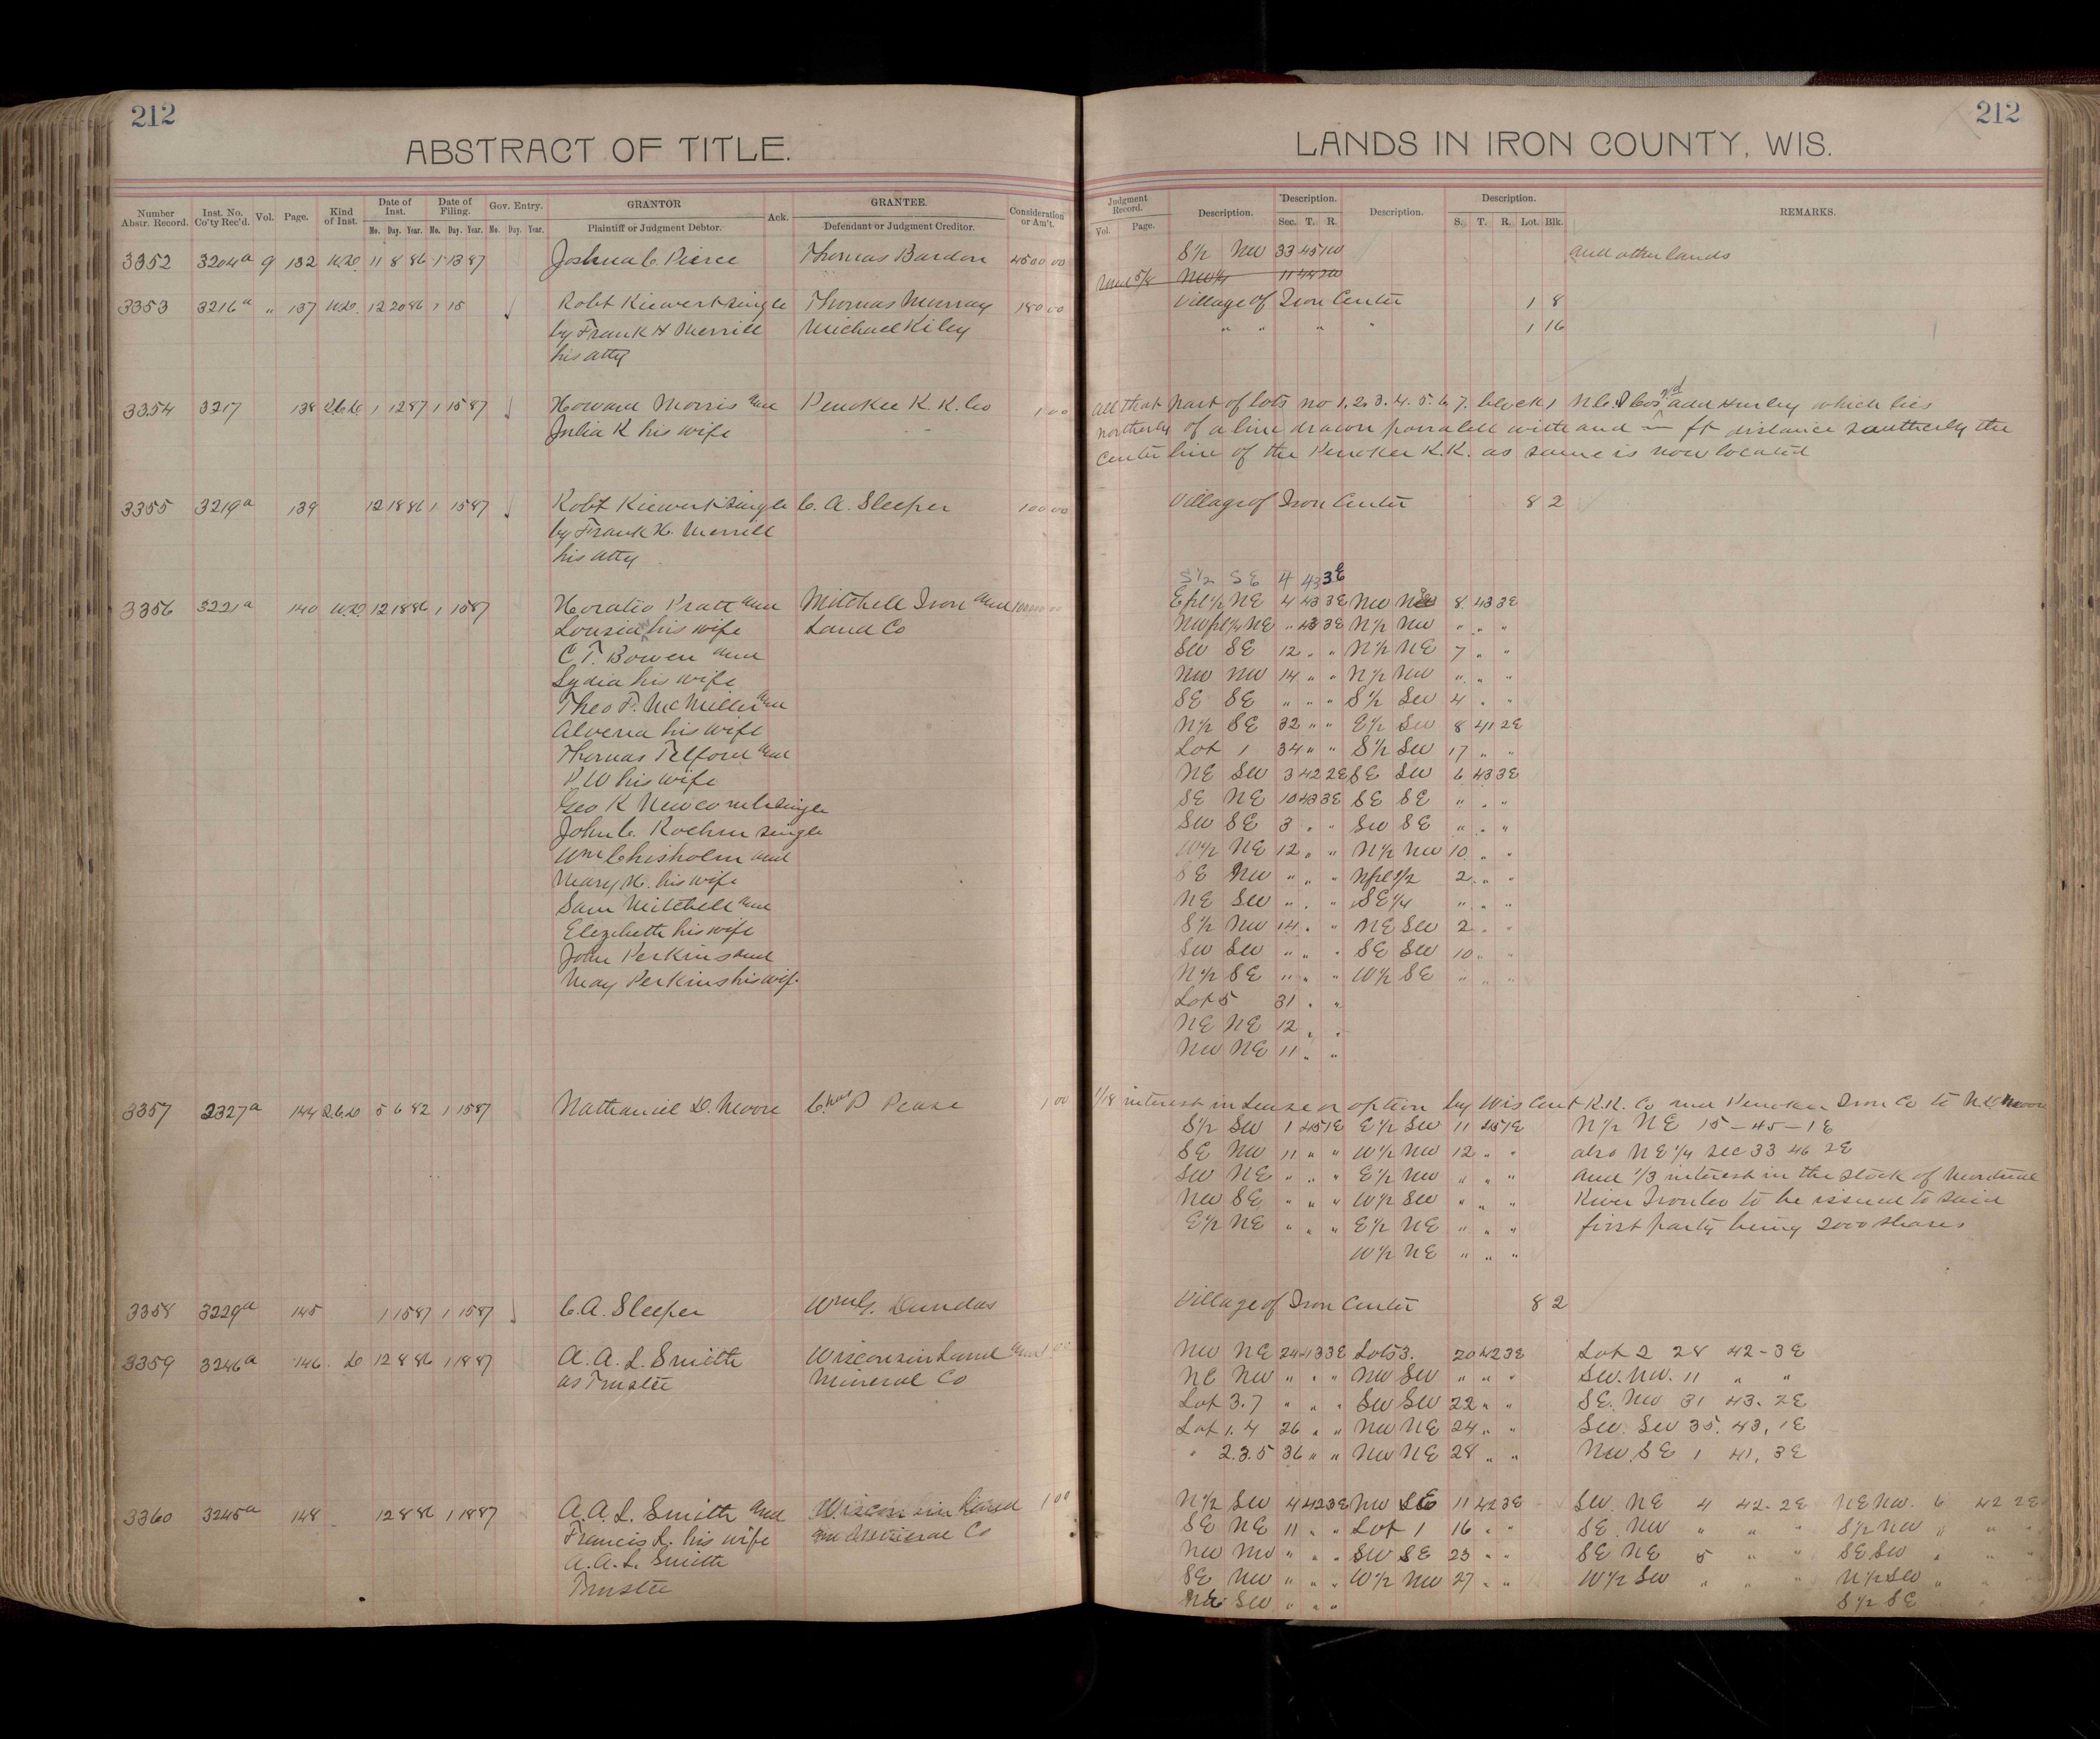 212
212
ABSTRACT OF TITLE.
LANDS IN IRON COUNTY, WIS.
Number Abstr. Record. Inst. No. Co'ty Rec'd. Vol. Page. Kind of Inst. Date of Inst. Mo. Day. Year. Date of Filing. Mo. Day. Year. Gov. Entry. Mo. Day. Year. GRANTOR Plaintiff or Judgment Debtor. Ack. GRANTEE. Defendant or Judgment Creditor. Consideration or Am't.
Judgment Record. Vol. Page. Description. Description. Sec. T. R. Description. Description. S. T. R. Lot. Blk. REMARKS.
3352 3204a 9 132 W.D. 11 8 86 1 13 87 Joshua C Pierce Thomas Bardon 4500 00 S½ NW 33 45 1W and other lands
NW¼ 11
3353 3216a " 137 W.D. 12 20 86 1 15 Robt Kiewert single Thomas Murray 180 00 Village of Iron Center 1 8
by Frank H Merrill Michael Kiley " " " " 1 16
his atty
3354 3217 138 Q.C.D. 1 12 87 1 15 87 Howard Morris and Penokee R.R. Co 1 00 all that part of lots no 1. 2. 3. 4. 5. 6. 7. block 1 2nd add Hurley which lies
Julia K his wife northerly of a line drawn parralell with and — ft distance southerly the
center line of the Penokee R.R. as same is now located
3355 3219a 139 12 18 86 1 15 87 Robt Kiewert single C. A. Sleeper 100 00 Village of Iron Center 8 2
by Frank H. Merrill
his atty
S½ SE 4 43 3E
3356 3221a 140 W.D. 12 18 86 1 15 87 Horatio Pratt and Mitchell Iron and E frl ½ NE 4 43 3E NW 8 43 3E
Lousia his wife Land Co NW frl ¼ NE " 43 3E N½ NW " " "
C T. Bowen and SW SE 12 " " N½ NE 7 " "
Lydia his wife NW NW 14 " " N½ NW " " "
Theo F. McMiller and SE SE " " " S½ SW 4 " "
Alvena his wife N½ SE 32 " " E½ SW 8 41 2E
Thomas Telford and Lot 1 34 " " S½ SW 17 " "
P.W his wife NE SW 3 42 2E SE SW 6 43 3E
Geo K Newcomb single SE NE 10 43 3E SE SE " " "
John C. Roehm single SW SE 3 " " SW SE " " "
Wm Chisholm and W½ NE 12 " " N½ NW 10 " "
Mary H. his wife SE NW " " " N frl ½ 2 " "
Sam Mitchell and NE SW " " " SE¼ " " "
Elizabeth his wife S½ NW 14 " " NE SW 2 " "
John Perkins and SW SW " " " SE SW 10 " "
May Perkins his wife N½ SE " " " W½ SE " " "
Lot 5 31 " "
NE NE 12 " "
NW NE 11 " "
3357 2327a 144 Q.C.D 5 6 82 1 15 87 Nathaniel D. Moore Chas P Pease 1 00 1/18 interest in Lease or option by Wis Cent R.R. Co and Penokee Iron Co to N.D. Moore
S½ SW 1 45 1E E½ SW 11 45 1E N½ NE 15–45–1E
SE NW 11 " " W½ NW 12 " " also NE¼ Sec 33 46 2E
SW NE " " " E½ NW " " " and 1/3 interest in the stock of Montreal
NW SE " " " W½ SW " " " River Iron Co to be issued to said
E½ NE " " " E½ NE " " " first party being 2000 shares
W½ NE " " "
3358 3229a 145 1 15 87 1 15 87 C.A. Sleeper Wm G. Dundas Village of Iron Center 8 2
3359 3246a 146 D 12 8 86 1 18 87 A. A. L. Smith Wisconsin Land and 1 00 NW NE 24 43 3E Lots 3. 20 42 3E Lot 2 28 42–3E
as Trustee Mineral Co NE NW " " " NW SW " " " SW. NW. 11 " "
Lot 3.7 " " " SW SW 22 " " SE. NW 31 43. 2E
Lot 1. 4 26 " " NW NE 24 " " SW. SW 35. 43, 1E
" 2.3.5 36 " " NW NE 28 " " NW. SE 1 41, 3E
3360 3245a 148 12 8 86 1 18 87 A. A. L. Smith and Wisconsin Land 1 00 N½ SW 4 42 3E NW SE 11 42 3E SW. NE 4 42–2E NE NW. 6 42 2E
Francis L. his wife and Mineral Co SE NE 11 " " Lot 1 16 " " SE. NW " " " S½ NW " " "
A. A. L. Smith NW NW " " " SW SE 23 " " SE NE 5 " " SE SW " " "
Trustee SE NW " " " W½ NW 27 " " W½ SW " " " N½ SW " " "
NE SW " " " S½ SE